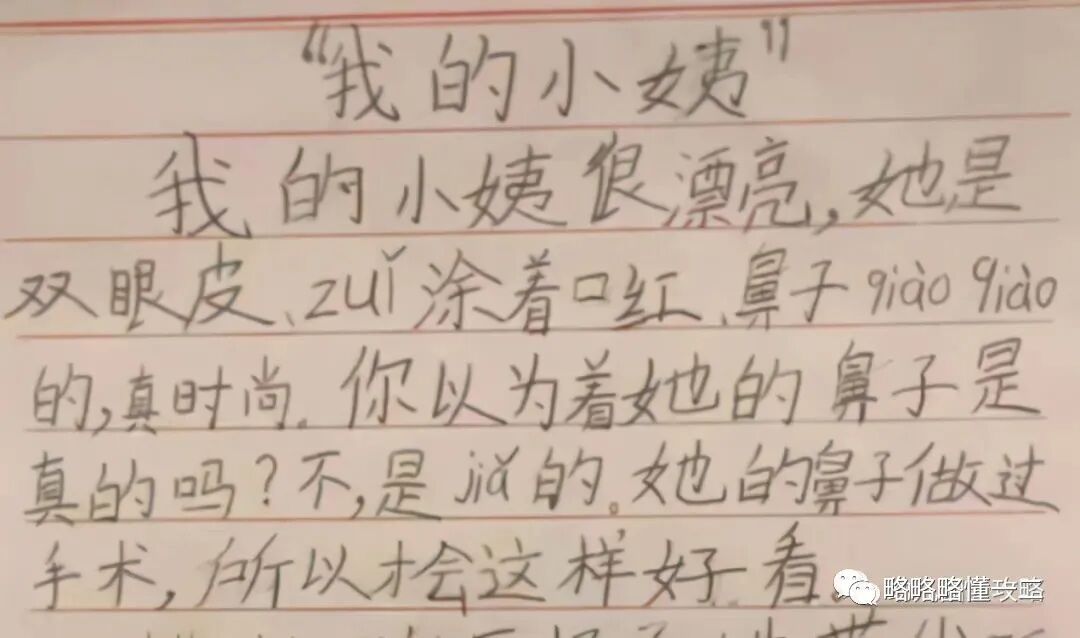 “我的小姨”
我的小姨很漂亮,她是
双眼皮、zuǐ涂着口红、鼻子qiào qiào
的,真时尚.你以为着她的鼻子是
真的吗?不,是jiǎ的。她的鼻子做过
手术,所以才会这样好看。
略略略懂攻略